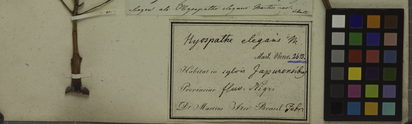 als Hyospathe elegans Martius
Hyospathe elegans M.
Mart. Observ. 2611.
Habitat in sylvis Japurensibus
Provinciae fluv. Nigri
Dr Martius Iter Brasil Febr.